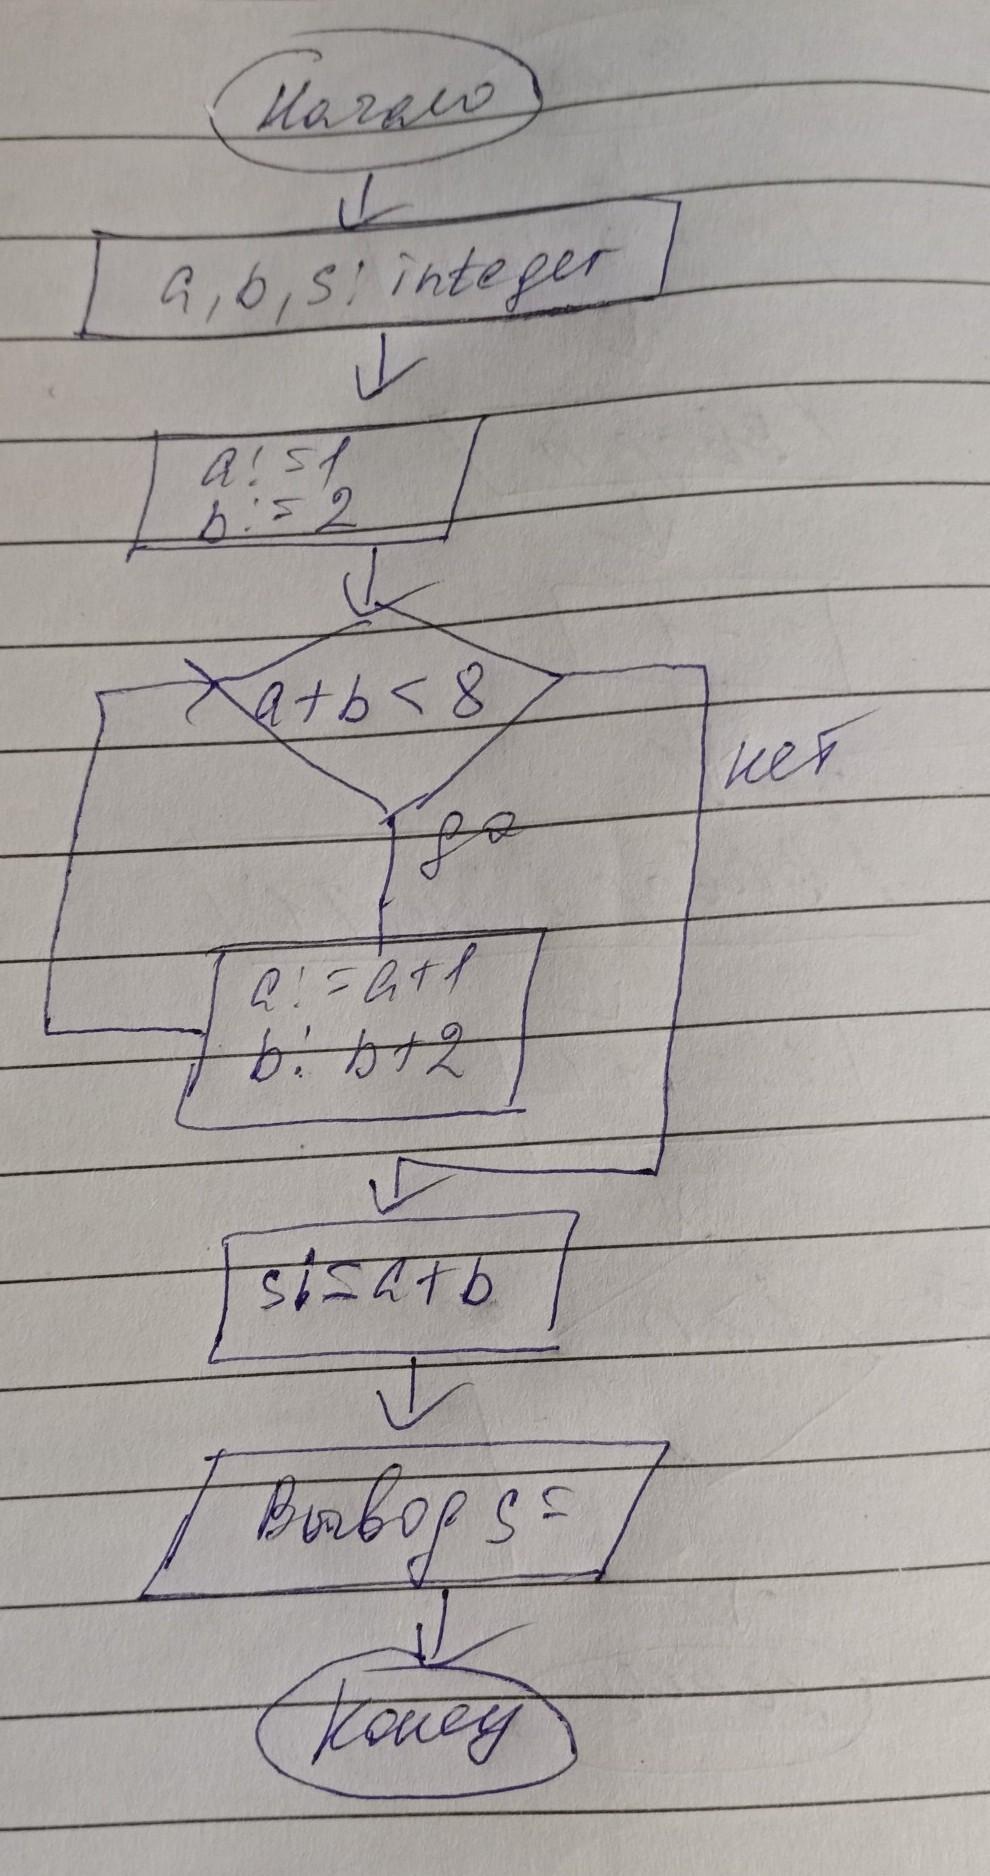 Начало
a, b, s: integer
a:=1
b:=2
a+b<8
нет
да
a:=a+1
b: b+2
s:=a+b
Вывод s=
Конец